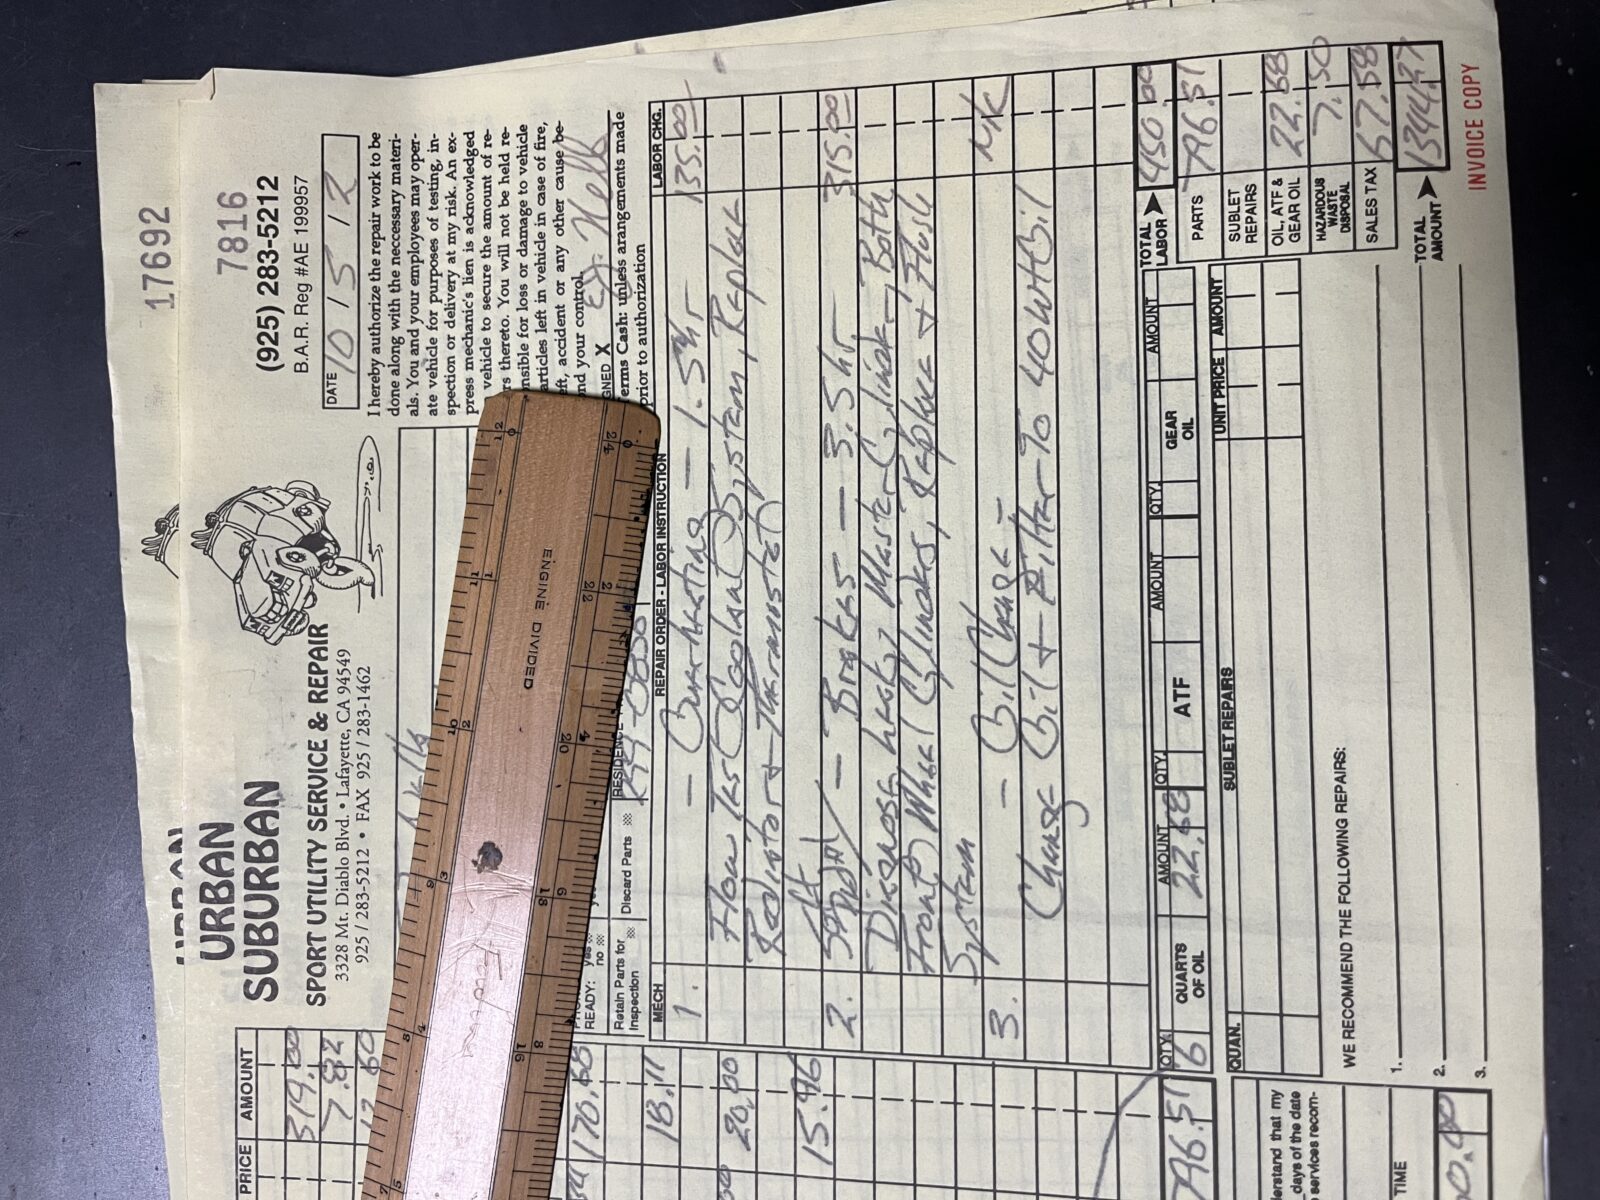 17692
URBAN
SUBURBAN
7816
SPORT UTILITY SERVICE & REPAIR
(925) 283-5212
3328 Mt. Diablo Blvd. • Lafayette, CA 94549
B.A.R. Reg #AE 199957
925 / 283-5212 • FAX 925 / 283-1462
DATE 10 15 12
I hereby authorize the repair work to be
done along with the neccessary materi-
als. You and your employees may oper-
ate vehicle for purposes of testing, in-
spection or delivery at my risk. An ex-
press mechanic's lien is acknowledged
vehicle to secure the amount of re-
rs thereto. You will not be held re-
nsible for loss or damage to vehicle
articles left in vehicle in case of fire,
eft, accident or any other cause be-
nd your control.
GNED X
erms Cash: unless arangements made
prior to authorization
ENGINE DIVIDED
READY: yes no
RESIDENCE
Retain Parts for Inspection
Discard Parts
MECH REPAIR ORDER - LABOR INSTRUCTION LABOR CHG.
1. – Overheating – 1.5hr 135.00
Flow Test Coolant System, Replace
Radiator + Thermostat
2. – Brakes – 3.5hr 315.00
Diagnose Leaky Master Cylinder, Both
Front Wheel Cylinders, Replace + Flush
System
3. – Oil Change – N/C
Change Oil + Filter To 40WT Oil
TOTAL LABOR 450.00
PARTS 796.51
SUBLET REPAIRS
OIL, ATF & GEAR OIL 22.68
HAZARDOUS WASTE DISPOSAL 7.50
SALES TAX 67.58
TOTAL AMOUNT 1344.27
INVOICE COPY
QTY. 6 QUARTS OF OIL AMOUNT 22.68 QTY. ATF AMOUNT QTY. GEAR OIL AMOUNT
QUAN. SUBLET REPAIRS UNIT PRICE AMOUNT
WE RECOMMEND THE FOLLOWING REPAIRS:
1.
2.
3.
PRICE AMOUNT
319.00
7.82
170.68
18.11
20.00
15.96
796.51
erstand that my
days of the date
services recom-
TIME
0.00